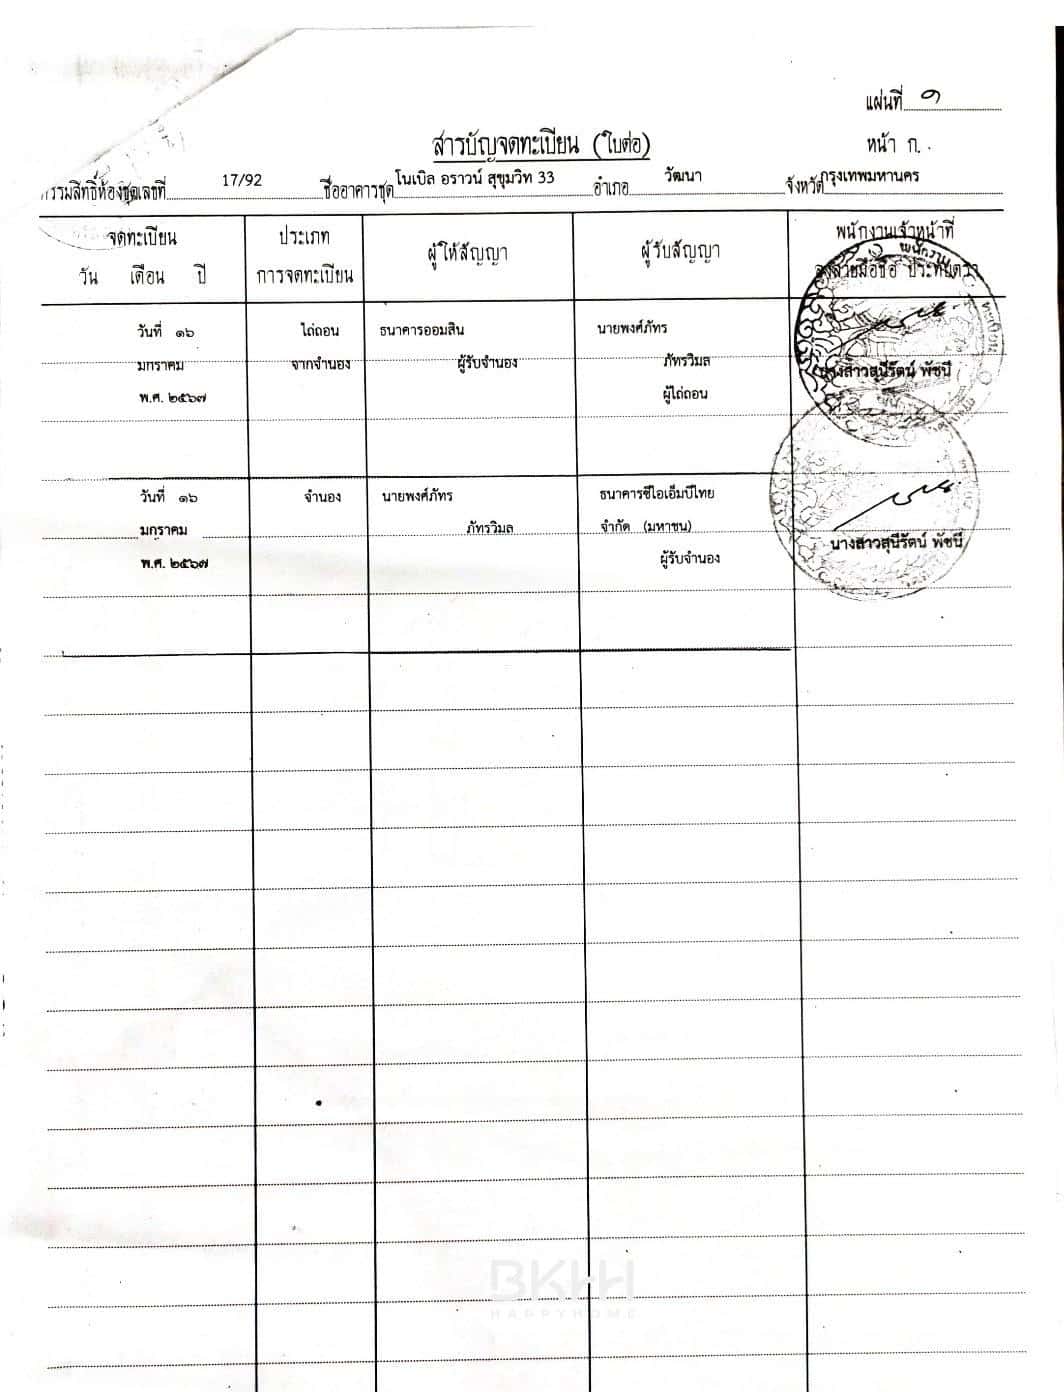 แผ่นที่ ๑
สารบัญจดทะเบียน (ใบต่อ)
หน้า ก.
กรรมสิทธิ์ห้องชุดเลขที่ 17/92 ชื่ออาคารชุด โนเบิล อราวน์ สุขุมวิท 33 อำเภอ วัฒนา จังหวัด กรุงเทพมหานคร
จดทะเบียน ประเภท ผู้ให้สัญญา ผู้รับสัญญา พนักงานเจ้าหน้าที่
วัน เดือน ปี การจดทะเบียน ลงลายมือชื่อ ประทับตรา
วันที่ ๑๖ ไถ่ถอน ธนาคารออมสิน นายพงศ์ภัทร
มกราคม จากจำนอง ผู้รับจำนอง ภัทรวิมล
นางสาวสุนีรัตน์ พัชนี
พ.ศ. ๒๕๖๗ ผู้ไถ่ถอน
วันที่ ๑๖ จำนอง นายพงศ์ภัทร ธนาคารซีไอเอ็มบีไทย
มกราคม ภัทรวิมล จำกัด (มหาชน)
นางสาวสุนีรัตน์ พัชนี
พ.ศ. ๒๕๖๗ ผู้รับจำนอง
BKHH
HAPPYHOME